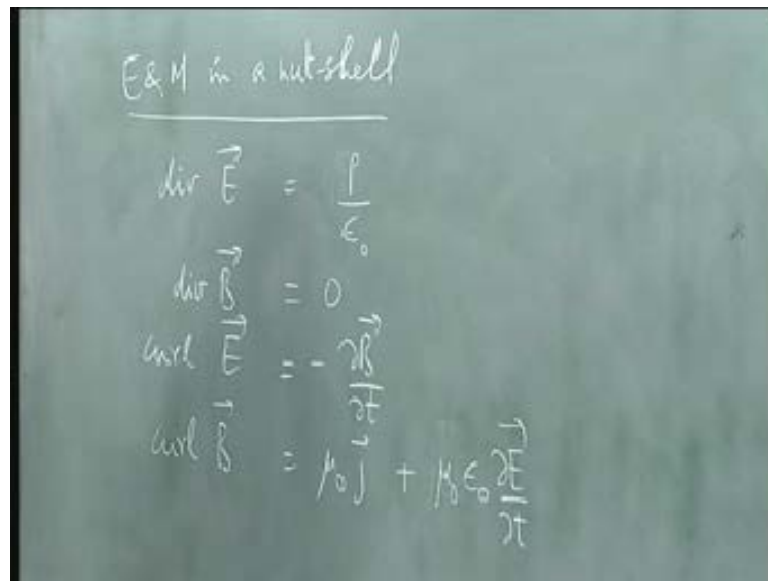 E&M in a nut-shell
div \vec{E} = \frac{ρ}{ε_0}
div \vec{B} = 0
curl \vec{E} = - \frac{∂\vec{B}}{∂t}
curl \vec{B} = μ_0 \vec{j} + μ_0 ε_0 \frac{∂\vec{E}}{∂t}